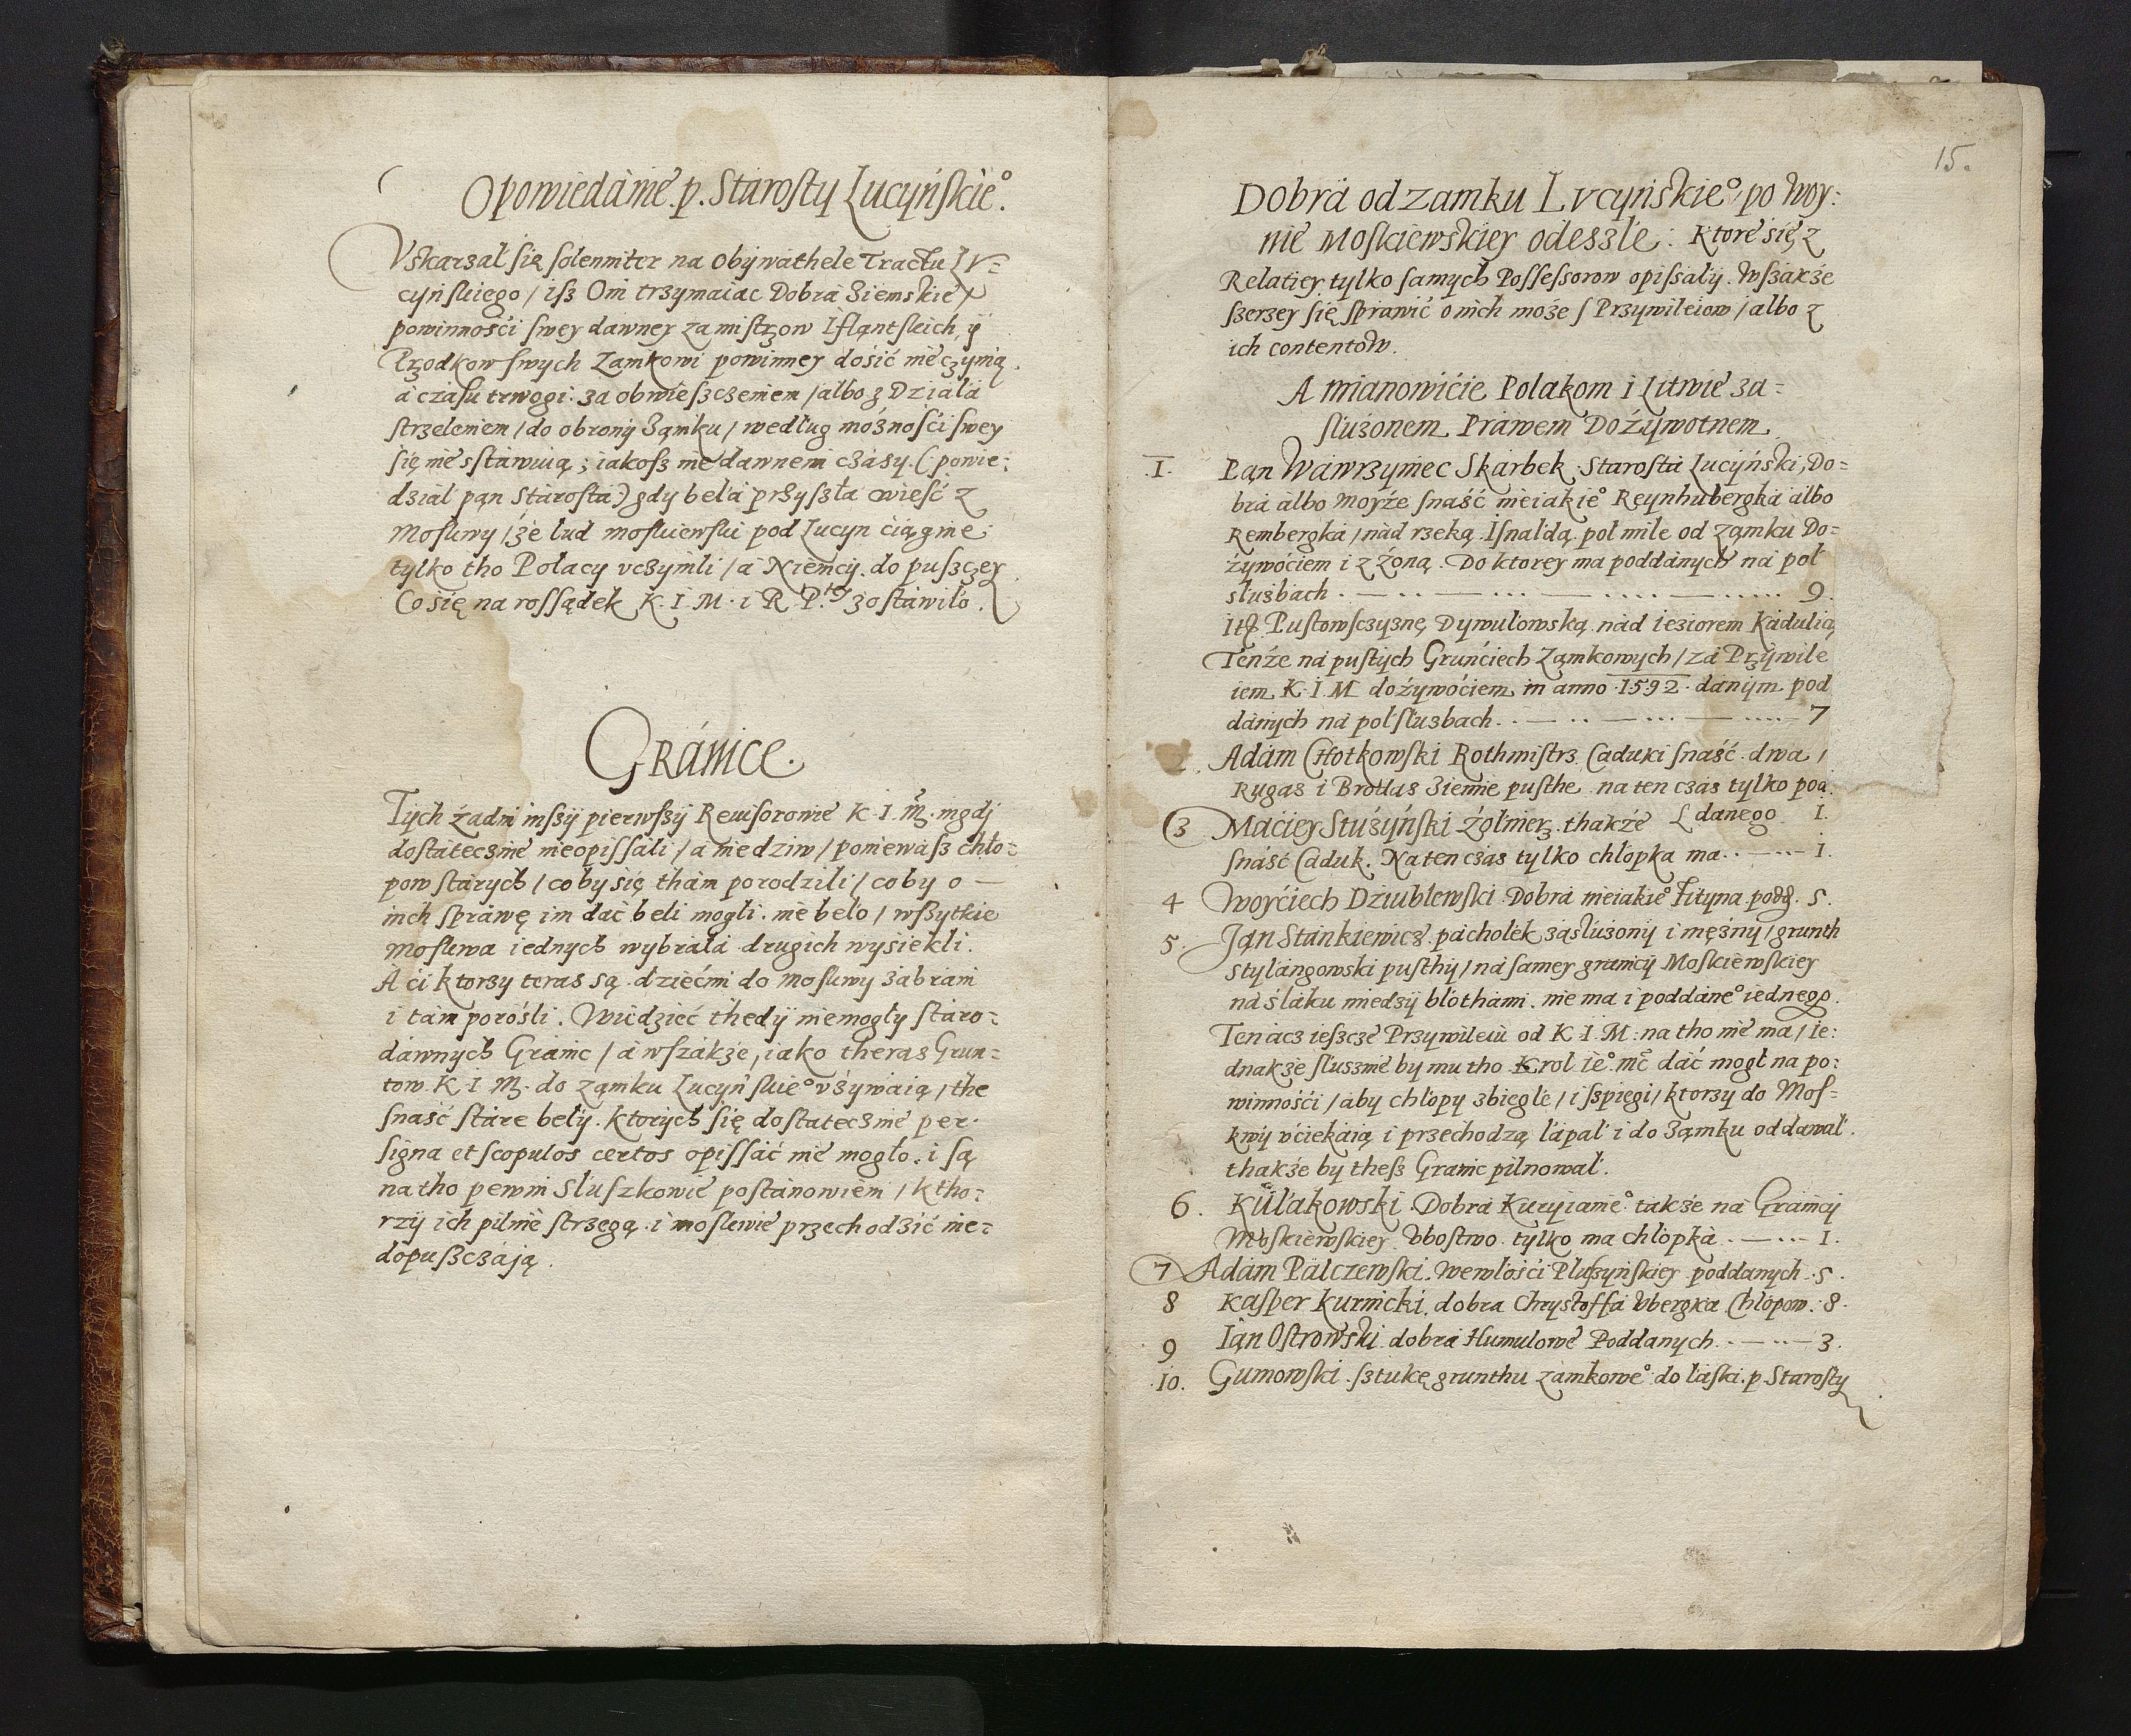 Opowiedánié p. Starosty Lucyńskie°.
Vskarzal się solenniter na obijwathele Tractu LV=
cyńskiego / isz Oni trzymaiac Dobrá Ziemskie x
powinnośći swey dawney za mistrzow Iflantskich, ÿ
Przodkow swych Zamkowi powinney dosić nie czynią.
á czásu trwogi. zá obwieszczeniem / albo z Dziáłá
strzeleniem / do obrony Zámku / według możnośći swey
się nie sstáwiią; iákosz niedawnemi czásy. (powie:
dział pąn Stárostá) gdy belá przyszłá wieść z
Moskwy / że lud moskiewski pod Lucyn ciągnie
tylko tho Polacy vczynili / á Niemcy. do puszczey
Co się na rossądek K. I. M. i R. P.tej zostáwiło.
Gránice.
Tych żadni inszÿ pierwszÿ Rewisorowie K. I. M. nigdj
dostátecznie nieopissáli / á niedziw / poniewász chło=
pow stárych / coby się thám porodzili / coby o —
nich spráwę im dáć beli mogli. nie beło / wszytkie
Moskwa iednych wybráłá drugich wysiekli.
A ći ktorzy teraz są dziećmi do Moskwy zábrani
i tám porośli. Widzieć thedÿ niemogły stáro=
dáwnych Gránic / á wszákże, iáko theras Grun=
tow K. I. M. do zamku Lucyńskie° vżywáią / the
snáść stáre beły. ktorych się dostátecznie per.
signa et scopulos certos opissáć nie mogło. i są
na tho pewni Słuszkowie postánowieni / ktho=
rzÿ ich pilnie strzegą. i moskwie przechodzić nie=
dopuszczáją.
15.
Dobrá od zamku Lvcyńskie°, po woy:
nie Moskiewskiey odeszłe: Ktore się z
Relatiey tylko samych Possessorow opissáły. Wszákże
szerzey się spráwić o nich może s Przywileiow / albo z
ich contentow.
A mianowićie Polakom i Litwie za=
służonem Práwem Dożywotnem
1. Pąn Wáwrzyniec Skarbek Starostá Lucyński, Do=
brá álbo moyże snáść nieiákie° Reynhubergká álbo
Rembergká / nád rzeką Isnáldą poł mile od zamku Do=
żywóciem i z żoną. Do ktorey ma poddánych ná poł
służbach . — .. — ... — .... — ..... 9.
Itē Pustowszczyznę Dywulowską nád ieziorem Kádulią
Tenże ná pustych Gruńciech Zamkowych / zá Przÿwile
iem K. I. M. dożywóciem in anno 1592. dánÿm pod
dánych ná poł służbach . . — .. — ... — .... 7
Adám Chotkowski Rothmistrz Caduki snáść dwa /
Rugas i Brodas Ziemie pusthe na ten czas tylko pod
danego 1.
3 Maciey Stużyński żołnierz thákże
snáść Caduk. Na ten czas tylko chłopka ma .. — ... 1.
4 Woyćiech Dziublewski Dobrá nieiákie° Fityna podd. 5.
5. Jąn Stánkiewicz páchołek zásłużony i mężny / grunth
Stylángowski pusthÿ / ná samey gránicÿ Moskiewskiey
ná śláku miedzÿ błothámi. nie ma i poddáne° iednego.
Ten acz ieszcze Przywileiu od K. I. M. na tho nie ma / ie:
dnákże słusznie by mu tho Krol ie° mć dáć mogł na po:
winnośći / áby chłopy zbiegłe / i szpiegi / ktorzy do Mos=
kwÿ vćiekáią i przechodzą łápał i do Zamku oddawał.
thákże by thesz Gránic pilnował.
6. Kułakowski Dobrá Kuryiáne° tákże ná Gránicÿ
Moskiewskiey Vbostwo tylko ma chłopká . — ... 1.
7 Adám Pálczewski. Wewłośći Pluszyńskiey poddanych . 5.
8 Kásper Kurnicki dobra Chrystoffá Vbergká Chłopow . 8.
9 Iąn Ostrowski dobrá Humulowe Poddanych . — ... 3.
10. Gumowski. sztukę grunthu zámkowe° do łáski p Starosty